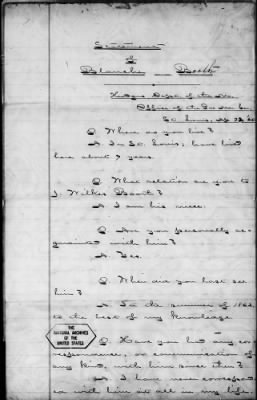 Statement
of
Blanche Booth
Office of the
St. Louis,
Q Where do you live?
A In St. Louis, have lived
here about 7 years.
Q What relation are you to
J. Wilkes Booth?
A I am his niece.
Q Are you personally ac-
quainted with him?
A Yes.
Q When did you last see
him?
A In the summer of 1862,
to the best of my knowledge
Q Have you had any cor-
respondence, or communication of
any kind, with him since then?
A I have never correspond-
ed with him at all in my life.
THE
NATIONAL ARCHIVES
OF THE
UNITED STATES